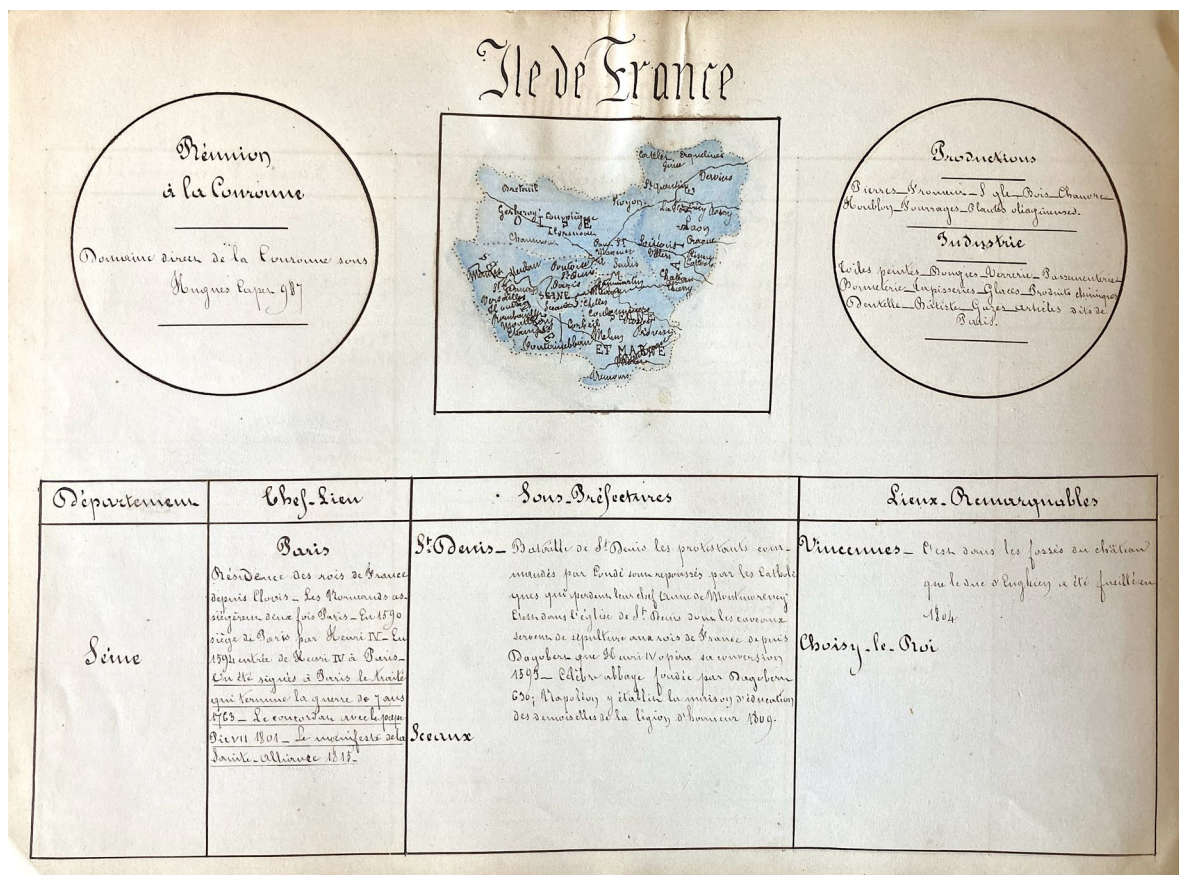 Ile de France
Réunion
à la Couronne
Domaine direct de la Couronne sous
Hugues Capet 987
Breteuil
Noyon
Vervins
Laon
Gerberoy
Compiègne
Clermont
Chaumont
Senlis
Pontoise
St Denis
Paris
SEINE
Versailles
Sceaux
Chelles
Corbeil
Melun
Provins
Fontainebleau
ET MARNE
Productions
Pierres_Froment_S gle_Bois_Chanvre_
Houblon_Fourrages_Plantes oléagineuses.
Industrie
Toiles peintes_Bougies_Verrerie_Passementerie
Bonneterie_Tapisseries_Glaces_Produits chimiques
Dentelle_Batiste_Gazes_articles dits de
Paris.
Département
Chef-Lieu
Sous-Préfectures
Lieux-Remarquables
Seine
Paris
Résidence des rois de France
depuis Clovis_Les Normands as-
siégèrent deux fois Paris_En 1590
siège de Paris par Henri IV_En
1594 entrée de Henri IV à Paris_
On été signés à Paris le traité
qui termine la guerre de 7 ans
1763_Le concordat avec le pape
Pie VII 1801_Le manifeste de la
Sainte-Alliance 1815_
St Denis_Bataille de St Denis les protestants com-
mandés par Condé sont repoussés par les Catholi
ques qui perdent leur chef Anne de Montmorency
C'est dans l'église de St Denis dont les caveaux
servent de sépulture aux rois de France depuis
Dagobert que Henri IV opéra sa conversion
1593_Célèbre abbaye fondée par Dagobert
630; Napoléon y établit la maison d'éducation
des demoiselles de la légion d'honneur 1809.
Sceaux
Vincennes_C'est dans les fossés du château
que le duc d'Enghien a été fusillé en
1804
Choisy-le-Roi